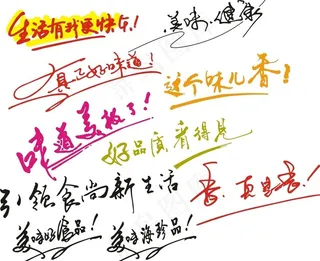 生活有我更快乐！
美味，健康
真正好味道！
这个味儿香！
味道美极了！
好品质看得见
引领食尚新生活
香，真是香！
美味好食品！
美味海珍品！